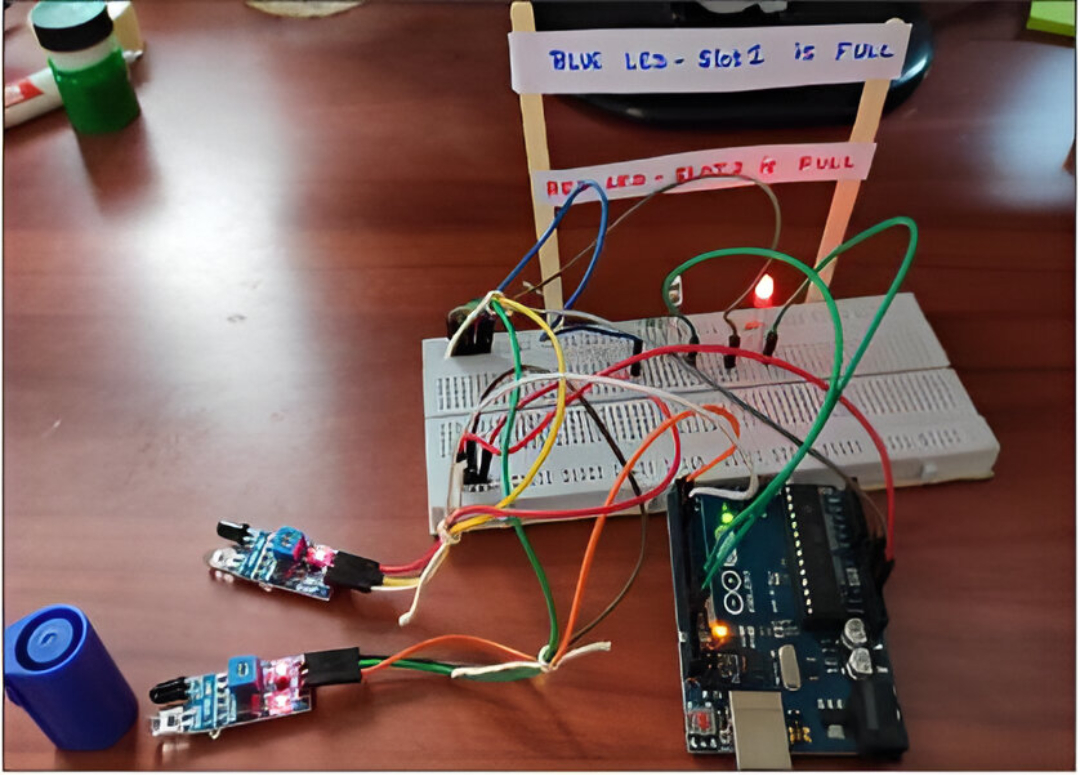 BLUE LED - Slot 1 is FULL
RED LED - SLOT 2 is FULL